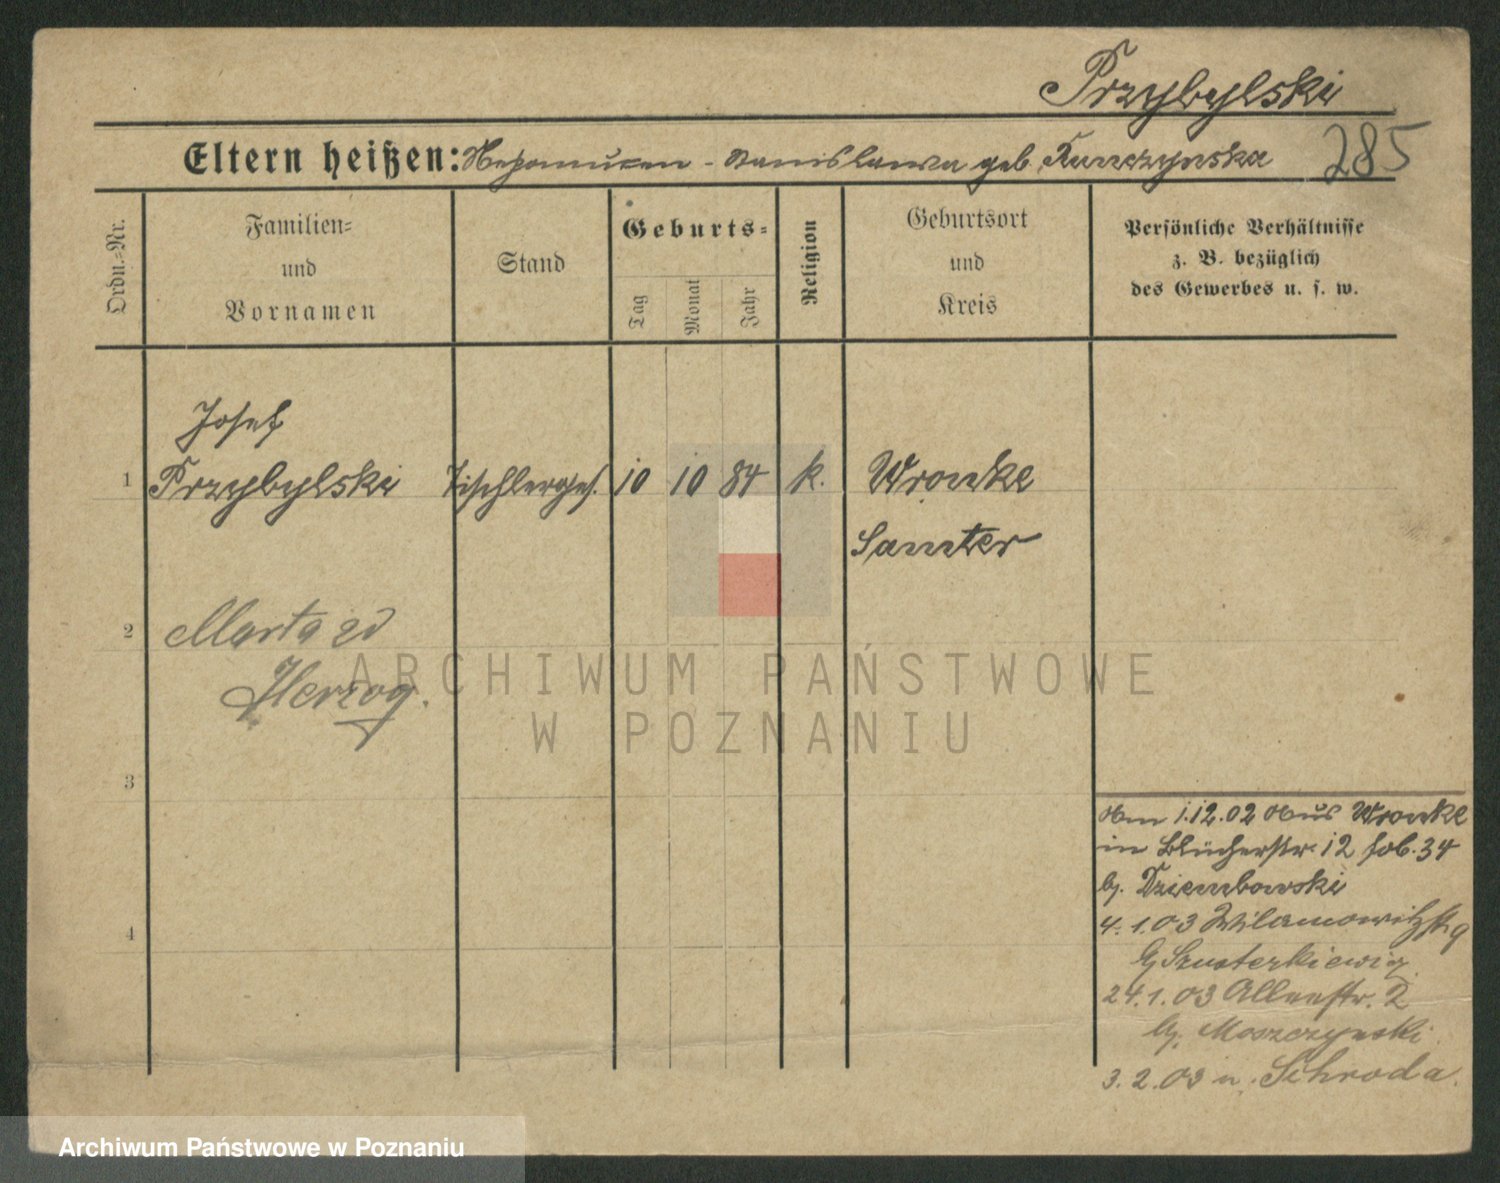 Przybylski
285
Eltern heißen: Nepomucen - Stanislawa geb.
Ordn.-Nr.
Familien-
und
Vornamen
Stand
Geburts-
Tag
Monat
Jahr
Religion
Geburtsort
und
Kreis
Persönliche Verhältnisse
z. B. bezüglich
des Gewerbes u. s. w.
Josef
1 Przybylski Tischlerges. 10 10 84 k. Wronke
Samter
2 Marta
Herzog.
3
4
Am 1.12.02 Aus Wronke
in Blücherstr. 12 34
b. Dziembowski
4.1.03 Wilamowitzstr 9
b
24.1.03 Alleestr. 2
b. Moszczynski
3.2.03 n. Schroda.
ARCHIWUM PAŃSTWOWE
W POZNANIU
Archiwum Państwowe w Poznaniu